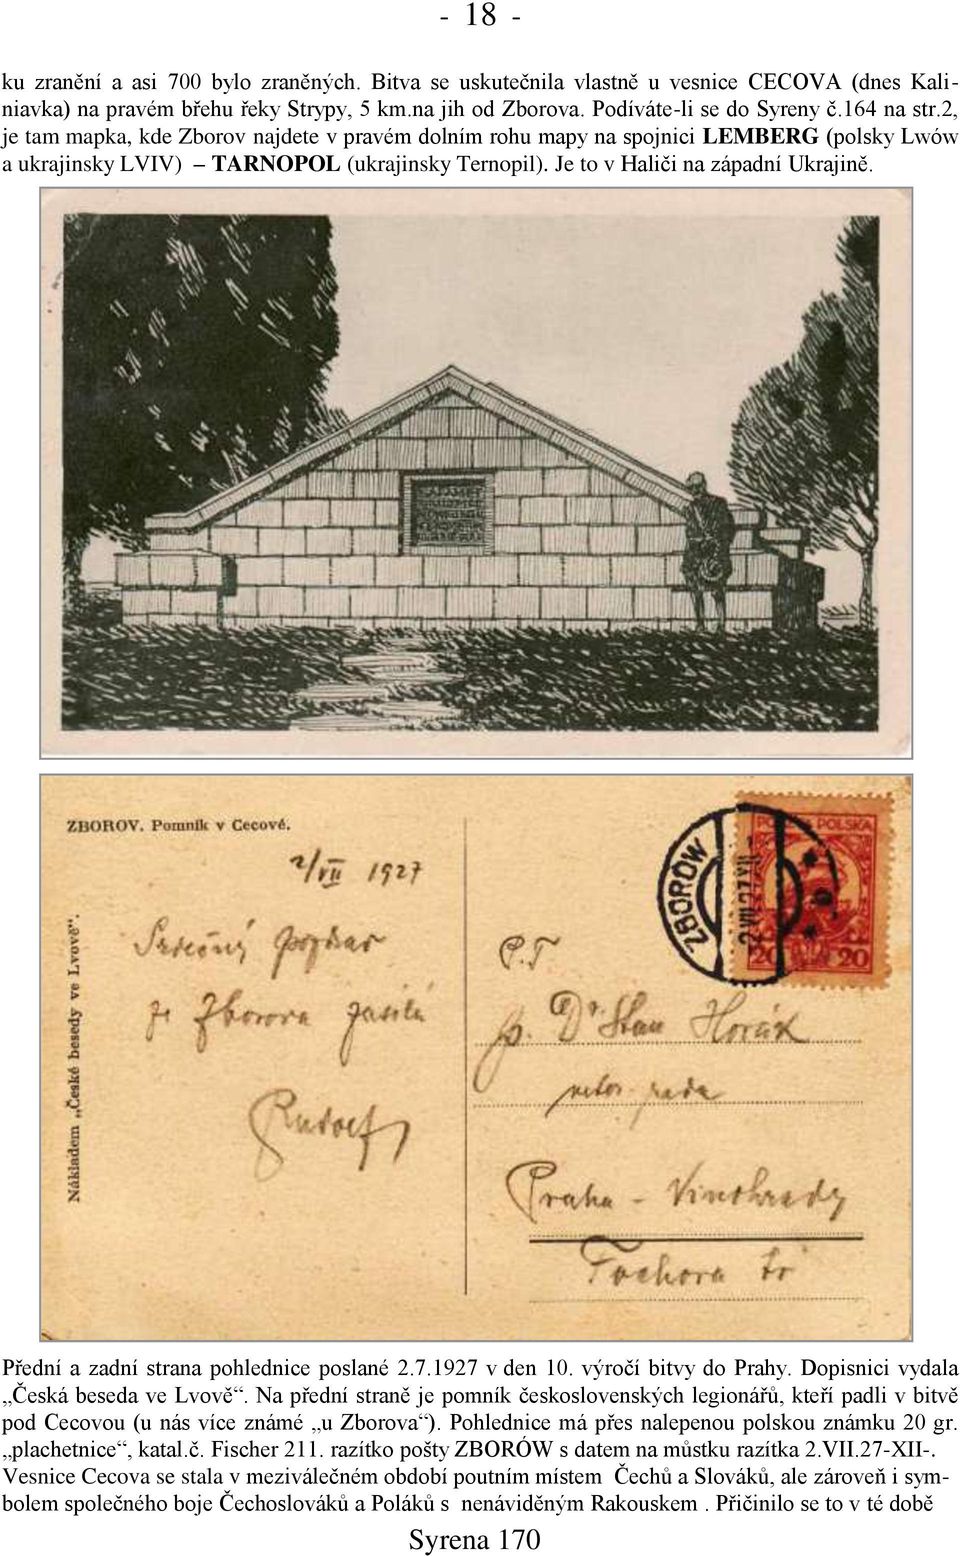 - 18 -
ku zranění a asi 700 bylo zraněných. Bitva se uskutečnila vlastně u vesnice CECOVA (dnes Kali-
niavka) na pravém břehu řeky Strypy, 5 km.na jih od Zborova. Podíváte-li se do Syreny č.164 na str.2,
je tam mapka, kde Zborov najdete v pravém dolním rohu mapy na spojnici LEMBERG (polsky Lwów
a ukrajinsky LVIV) – TARNOPOL (ukrajinsky Ternopil). Je to v Haliči na západní Ukrajině.
ZBOROV. Pomník v Cecové.
2/VII 1927
Srdečný pozdrav
ze Zborova zasílá
Rudolf
Nákladem „České besedy ve Lvově“.
POCZTA POLSKA
20 20
ZBORÓW
2 VII 27 XII -
P.T
p. Dr. Stan Horák
rada
Praha - Vinohrady
Fochova tř
Přední a zadní strana pohlednice poslané 2.7.1927 v den 10. výročí bitvy do Prahy. Dopisnici vydala
„Česká beseda ve Lvově“. Na přední straně je pomník československých legionářů, kteří padli v bitvě
pod Cecovou (u nás více známé „u Zborova“). Pohlednice má přes nalepenou polskou známku 20 gr.
„plachetnice“, katal.č. Fischer 211. razítko pošty ZBORÓW s datem na můstku razítka 2.VII.27-XII-.
Vesnice Cecova se stala v meziválečném období poutním místem Čechů a Slováků, ale zároveň i sym-
bolem společného boje Čechoslováků a Poláků s nenáviděným Rakouskem . Přičinilo se to v té době
Syrena 170